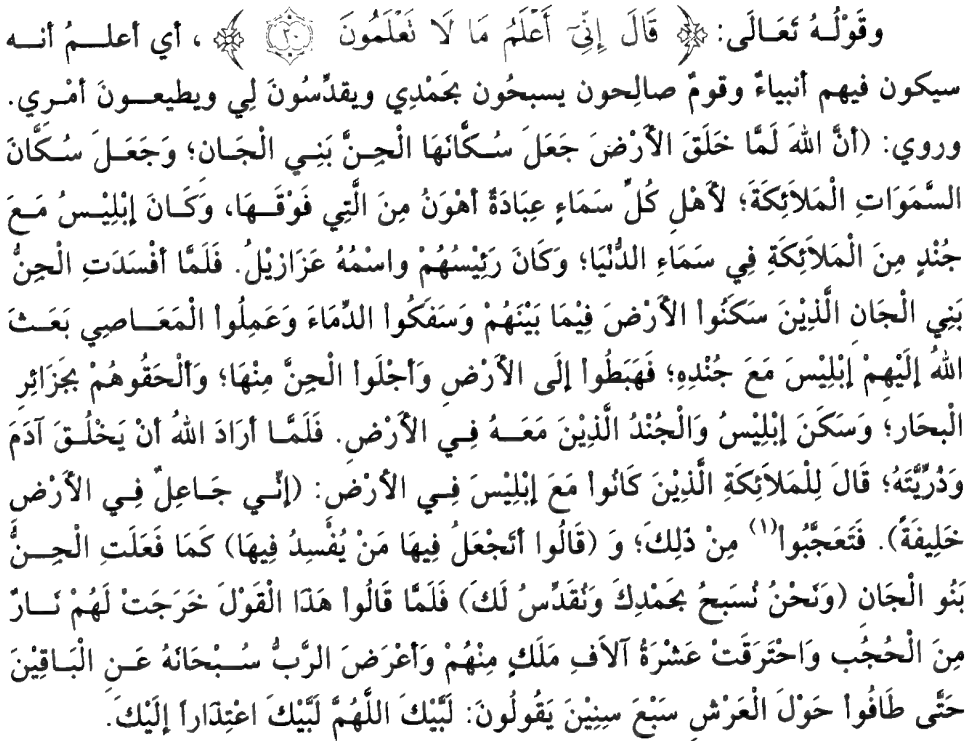 وقَوْلُهُ تَعَالَى: ﴿ قَالَ إِنِّيٓ أَعْلَمُ مَا لَا تَعْلَمُونَ ۝٣٠ ﴾ ، أي أعلـمُ أنـه
سيكون فيهم أنبياءٌ وقومٌ صالِحون يسبحُون بحَمْدِي ويقدِّسُونَ لِي ويطيعـونَ أمْرِي.
وروي: (أنَّ اللهَ لَمَّا خَلَقَ الأَرْضَ جَعَلَ سُـكَّانَهَا الْجِـنَّ بَنِـي الْجَـانِ؛ وَجَعَـلَ سُـكَّانَ
السَّمَوَاتِ الْمَلاَئِكَةَ؛ لأَهْلِ كُلِّ سَمَاءٍ عِبَادَةً أهْوَنُ مِنَ الَّتِي فَوْقَـهَا، وَكَـانَ إبْلِيْـسُ مَـعَ
جُنْدٍ مِنَ الْمَلاَئِكَةِ فِي سَمَاءِ الدُّنْيَا؛ وَكَانَ رَئِيْسُهُمْ واسْمُهُ عَزَازِيْلُ. فَلَمَّا أفْسَدَتِ الْجِنُّ
بَنِي الْجَانِ الَّذِيْنَ سَكَنُواْ الأَرْضَ فِيْمَا بَيْنَهُمْ وَسَفَكُواْ الدِّمَاءَ وَعَمِلُواْ الْمَعَـاصِي بَعَـثَ
اللهُ إلَيْهِمْ إبْلِيْسَ مَعَ جُنْدِهِ؛ فَهَبَطُواْ إلَى الأَرْضِ وَأجْلَواْ الْجِنَّ مِنْهَا؛ وَألْحَقُوهُمْ بجَزَائِرِ
الْبحَار؛ وَسَكَنَ إبْلِيْسُ وَالْجُنْدُ الَّذِيْنَ مَعَـهُ فِـي الأَرْضِ. فَلَمَّـا أرَادَ اللهُ أنْ يَخْلُـقَ آدَمَ
وَذُرِّيَّتَهُ؛ قَالَ لِلْمَلاَئِكَةِ الَّذِيْنَ كَانُواْ مَعَ إبْلِيْسَ فِـي الأَرْضِ: (إنِّـي جَـاعِلٌ فِـي الأَرْضِ
خَلِيفَةً). فَتَعَجَّبُواْ(١) مِنْ ذَلِكَ؛ وَ (قَالُوا أتَجْعَلُ فِيهَا مَنْ يُفْسِدُ فِيهَا) كَمَا فَعَلَتِ الْجِـنُّ
بَنُو الْجَان (وَنَحْنُ نُسَبحُ بحَمْدِكَ وَنُقَدِّسُ لَكَ) فَلَمَّا قَالُواْ هَذَا الْقَوْلَ خَرَجَتْ لَهُمْ نَـارٌ
مِنَ الْحُجُب وَاحْتَرَقَتْ عَشْرَةُ آلاَفِ مَلَكٍ مِنْهُمْ وَأعْرَضَ الرَّبُّ سُـبْحَانَهُ عَـنِ الْبَـاقِيْنَ
حَتَّى طَافُواْ حَوْلَ الْعَرْشِ سَبْعَ سِنِيْنَ يَقُولُونَ: لَبَّيْكَ اللَّهُمَّ لَبَّيْكَ اعْتِذَاراً إلَيْكَ.